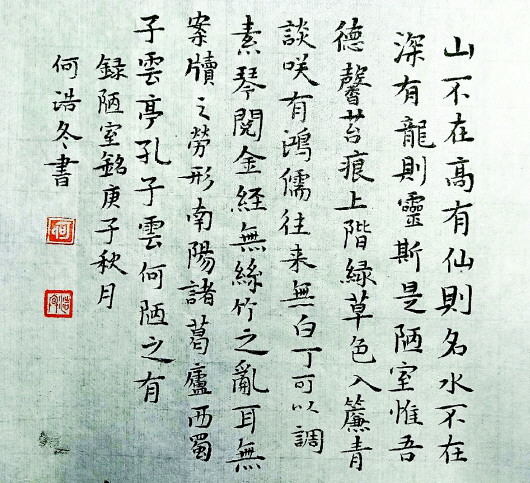 山不在高有仙則名水不在
深有龍則靈斯是陋室惟吾
德馨苔痕上階緑草色入簾青
談咲有鴻儒往来無白丁可以調
素琴閱金経無絲竹之亂耳無
案牘之勞形南陽諸葛廬西蜀
子雲亭孔子雲何陋之有
録陋室銘庚子秋月
何浩冬書
何